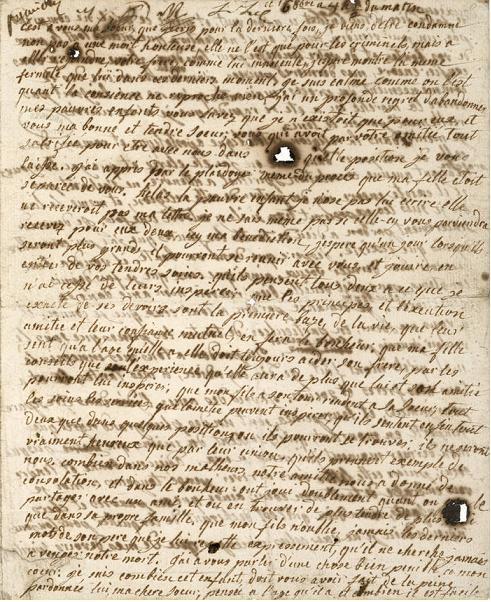 ce 16 8bre a 4 h ½ du matin
C'est a vous, ma Soeur, que j'ecris pour la derniere fois, je viens d'etre condamnée
non pas a une mort honteuse, elle ne l'est que pour les criminels, mais a
aller rejoindre votre frere, comme lui innocente, j'espere montrer la meme
fermeté que lui dans ces derniers moments. je suis calme comme on l'est
quant la conscience ne reproche rien, j'ai un profond regret d'abandonner
mes pauvres enfants vous savez que je n'existoit que pour eux, et
vous ma bonne et tendre Soeur, vous qui avez par votre amitié tout
sacrifié pour etre avec nous dans quelle position je vous
laisse. j'ai appris par le plaidoyer meme du proces que ma fille étoit
separée de vous. helas la pauvre enfant je n'ose pas lui ecrire elle
ne receveroit pas ma lettre je ne sais meme pas si celle-ci vous parviendra
recevez pour eux deux ici ma benediction. j'espere qu'un jour lorsqu'ils
seront plus grands, ils pourront se reunir avec vous et jouir en
entier de vos tendres soins. qu'ils pensent tous deux a ce que je
n'ai cessé de leurs inspirer, que les principes et l'execution
exacte de ses devoirs sont la premiere baze de la vie, que leur
amitié et leur confiance mutuel, en fera le bonheur, que ma fille
sent qu'a l'age qu'elle a elle doit toujours aider son frere par les
conseils que l'experience qu'elle aura de plus que lui et son amitié
pourront lui inspirer, que mon fils a son tour rendent a sa Soeur, tout
les soins, les services que l'amitié peuvent inspirer, qu'ils sentent enfin tous
deux que dans quelques positions ou ils pourront se trouver, ils ne seront
vraiment heureux que par leur union, qu'ils prennent exemple de
nous, combien dans nos malheurs, notre amitié nous a donné de
consolation, et dans le bonheur on jouit doublement quant on le
partager avec un ami, et ou en trouver de plus tendre de plus
que dans sa propre famille, que mon fils n'oublie jamais les derniers
mots de son pere que je lui repette expressement, qu'il ne cherche jamais
a venger notre mort. j'ai a vous parler d'une chose bien penible a mon
coeur. je sais combien cet enfant, doit vous avoir fait de la peine,
pardonnez lui ma chere Soeur, pensez a l'age qu'il a et combien il est facile